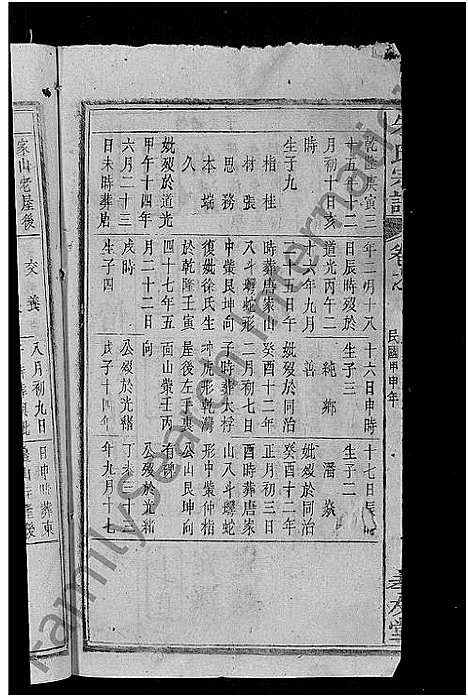 氏宗譜
卷之
民國甲申年
堂
乾隆庚寅三
十五年十二
月初十日亥
時
生子九
相 桂
材 張
思 務
本 端
久
妣歿於道光
甲午十四年
六月二十三
日未時葬唐
年二月十八
日辰時歿於
道光丙午二
十六年九月
十五日午
時葬唐家山
八斗螺蛇形
中癸艮坤向
復妣徐氏生
於乾隆壬寅
四十七年五
月二十二日
戌時
生子四
十六日申時
生子三
純 鄉
善
妣歿於同治
癸酉十二年
二月初七日
子時葬太梓
坤虎形乾海
屋後左手裏
面山癸丙
向
公歿於光緒
戊子十四年
十七日辰
生子二
潘 焱
妣歿於同治
癸酉十二年
正月初三日
酉時葬唐家
山八斗螺蛇
形中癸仲梢
公山艮坤向
有碑
公歿於光緒
丁未三十三
年九月十七
家山老屋後
交 義
八月初九日
日申時葬東